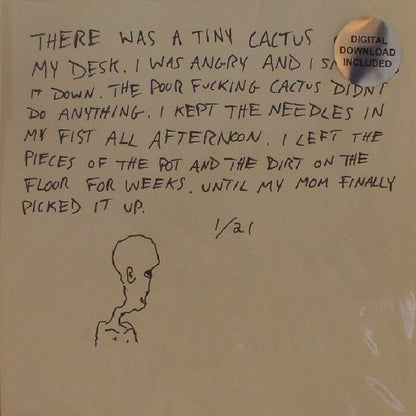 THERE WAS A TINY CACTUS
MY DESK. I WAS ANGRY AND I
IT DOWN. THE POOR FUCKING CACTUS DIDNT
DO ANYTHING. I KEPT THE NEEDLES IN
MY FIST ALL AFTERNOON. I LEFT THE
PIECES OF THE POT AND THE DIRT ON THE
FLOOR FOR WEEKS. UNTIL MY MOM FINALLY
PICKED IT UP.
1/21
DIGITAL
DOWNLOAD
INCLUDED